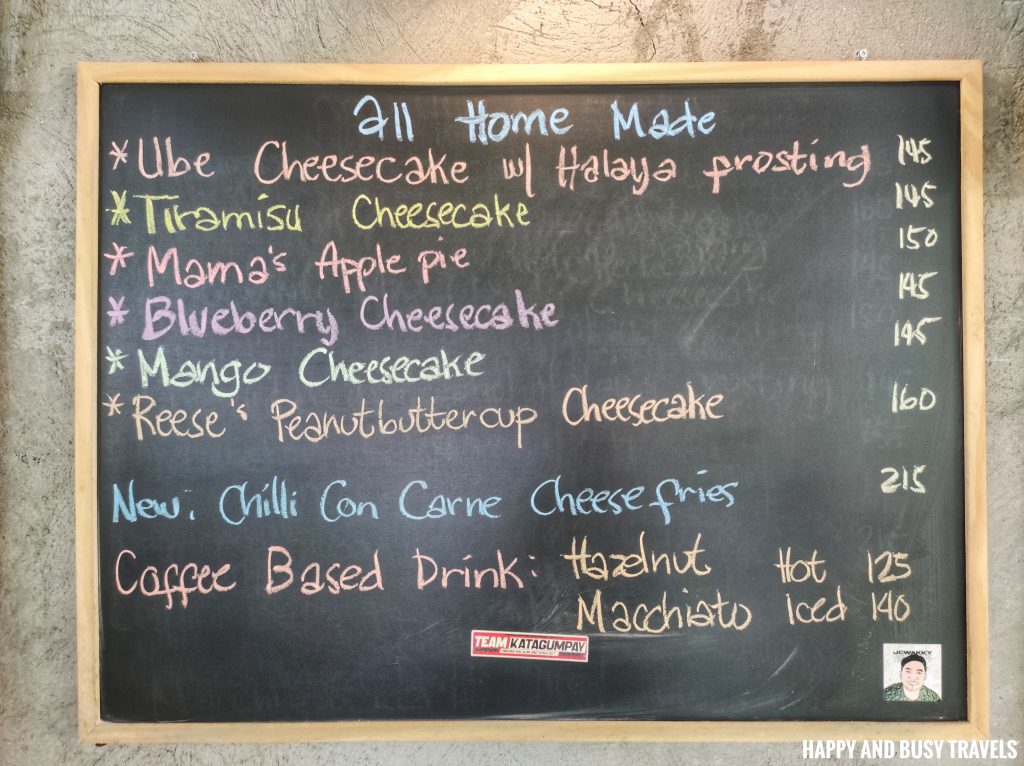 all Home Made
* Ube Cheesecake w/ Halaya frosting 145
* Tiramisu Cheesecake 145
* Mama's Apple pie 150
* Blueberry Cheesecake 145
* Mango Cheesecake 145
* Reese's Peanutbuttercup Cheesecake 160
New: Chilli Con Carne Cheese fries 215
Coffee Based Drink: Hazelnut Hot 125
Macchiato Iced 140
TEAM KATAGUMPAY
JCWAKKY
HAPPY AND BUSY TRAVELS